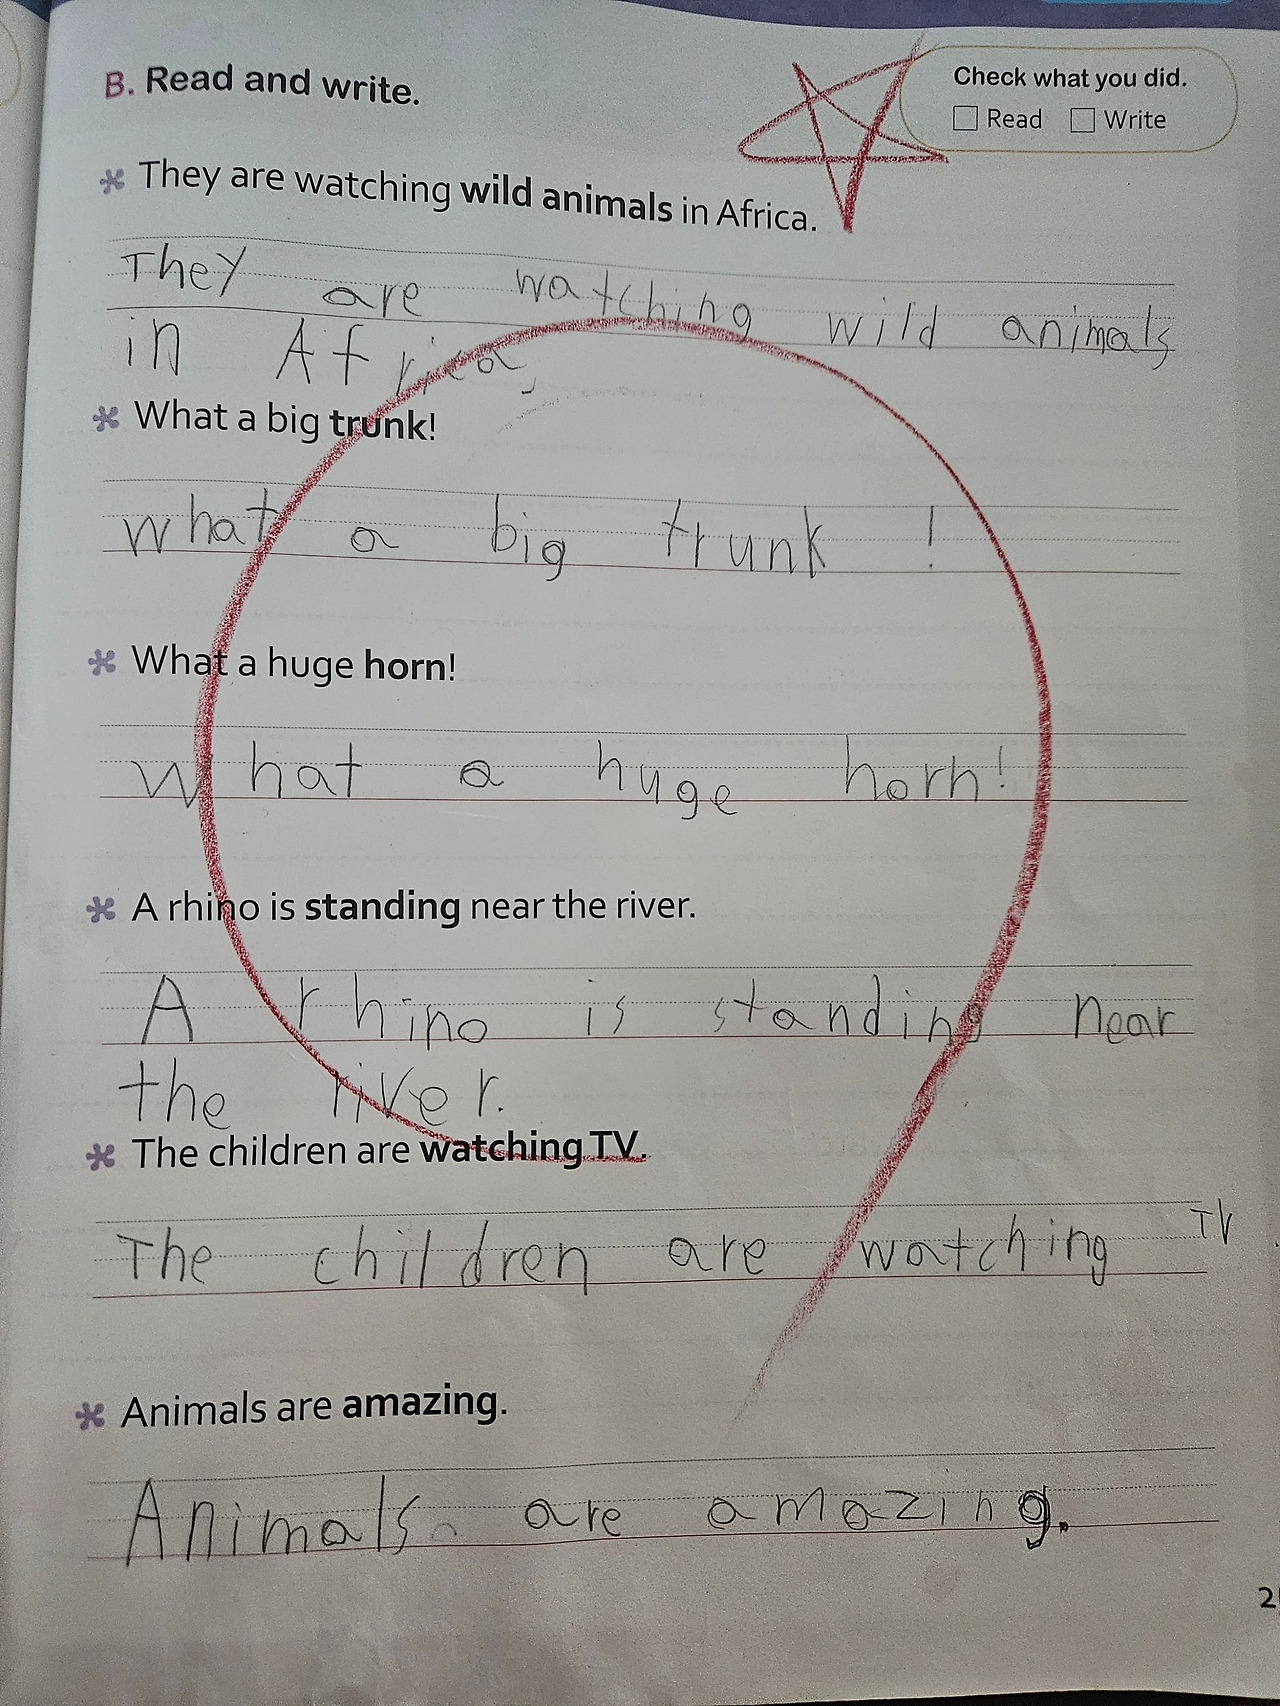 B. Read and write.
Check what you did.
Read Write
They are watching wild animals in Africa.
They are watching wild animals
in Africa,
What a big trunk!
what a big trunk !
What a huge horn!
What a huge horn!
A rhino is standing near the river.
A rhino is standing near
the river.
The children are watching TV.
The children are watching TV
Animals are amazing.
Animals are amazing.